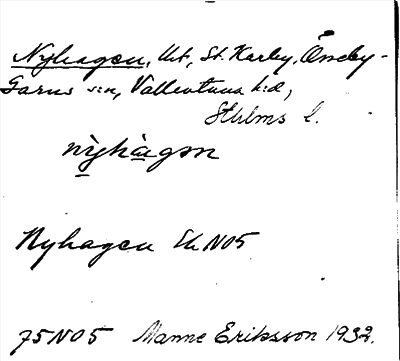 Nyhagen, Urt, St. Karby, Össeby-
Garns sn, Vallentuna hd,
Sthlms l.
nỳhàgen
Nyhagen Ek NO5
75NO5 Manne Eriksson 1932.